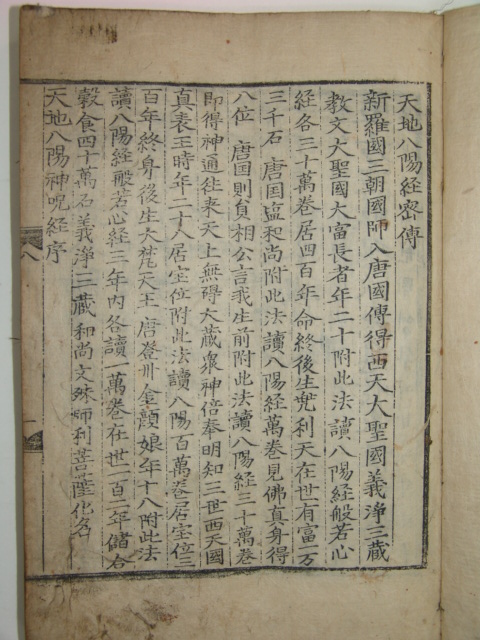 天地八陽經密傳
新羅國三朝國師入唐國傳得西天大聖國義淨三藏
教文大聖國大富長者年二十附此法讀八陽經般若心
經各三十萬卷居四百年命終後生兜利天在世有富一万
三千石 唐国塩和尚附此法讀八陽經萬卷見佛真身得
八位 唐国則貟相公言我生前附此法讀八陽經三十萬卷
即得神通徃来天上無碍大蔵衆神倍奉明知三世西天國
真表王時年二十八居宝位附此法讀八陽百萬卷居宝位三
百年終身後生大梵天王 唐登州金顔娘年十八附此法
讀八陽經般若心經三年内各讀一萬卷在世二百二年儲合
穀食四十萬石義淨三蔵和尚文殊師利菩薩化名
天地八陽神呪經序
八
一